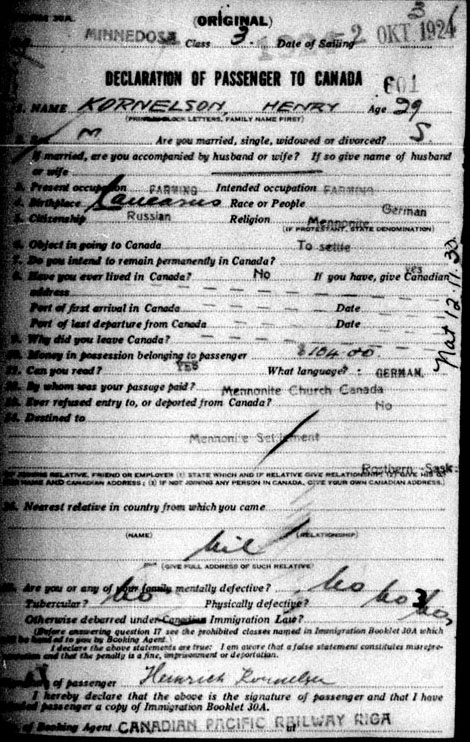 (ORIGINAL) 3
MINNEDOSA Class 3. Date of Sailing 2 OKT 1924
DECLARATION OF PASSENGER TO CANADA
601
1. NAME KORNELSON, HENRY Age 29
(PRINT IN BLOCK LETTERS, FAMILY NAME FIRST)
M Are you married, single, widowed or divorced? S.
If married, are you accompanied by husband or wife? If so give name of husband
or wife
3. Present occupation FARMING Intended occupation FARMING
4. Birthplace Caucasus Race or People German
5. Citizenship Russian Religion Mennonite
(IF PROTESTANT, STATE DENOMINATION)
6. Object in going to Canada To settle
7. Do you intend to remain permanently in Canada? yes
8. Have you ever lived in Canada? No If you have, give Canadian
address
Port of first arrival in Canada Date
Port of last departure from Canada Date
9. Why did you leave Canada?
10. Money in possession belonging to passenger $104.00
11. Can you read? YES What language? : GERMAN.
12. By whom was your passage paid? Mennonite Church Canada
13. Ever refused entry to, or deported from Canada? No
14. Destined to
Mennonite Settlement
Rosthern Sask.
RELATIVE, FRIEND OR EMPLOYER (1) STATE WHICH AND IF RELATIVE GIVE RELATIONSHIP; (2) GIVE HIS OR
HER NAME AND CANADIAN ADDRESS; (3) IF NOT JOINING ANY PERSON IN CANADA, GIVE YOUR OWN CANADIAN ADDRESS.
Nearest relative in country from which you came
(NAME) (RELATIONSHIP)
nil
(GIVE FULL ADDRESS OF SUCH RELATIVE)
Are you or any of your family mentally defective? no
Tubercular? no Physically defective? no
Otherwise debarred under Canadian Immigration Law? no
(Before answering question 17 see the prohibited classes named in Immigration Booklet 30A which
will be handed to you by Booking Agent.)
I declare the above statements are true: I am aware that a false statement constitutes misrepre-
sentation and that the penalty is a fine, imprisonment or deportation.
of passenger Heinrich Kornelsen
I hereby declare that the above is the signature of passenger and that I have
handed passenger a copy of Immigration Booklet 30A.
of Booking Agent CANADIAN PACIFIC RAILWAY RIGA
Nat 12.11.30